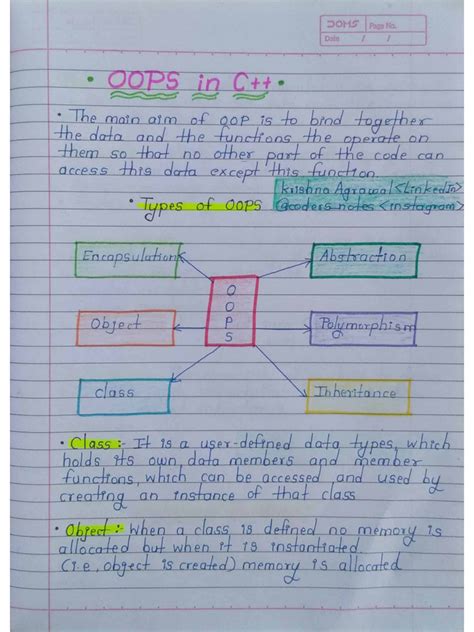 DOMS
Page No.
Date / /
• OOPS in C++ •
• The main aim of OOP is to bind together
the data and the functions the operate on
them so that no other part of the code can
access this data except this function.
krishna Agrawal <LinkedIn>
@coders notes <instagram>
• Types of OOPS
Encapsulation
Abstraction
OOPS
Object
Polymorphism
class
Inheritance
• Class :- It is a user-defined data types, which
holds its own data members and member
functions, which can be accessed and used by
creating an instance of that class
• Object :- When a class is defined no memory is
allocated but when it is instantiated
(i.e, object is created) memory is allocated